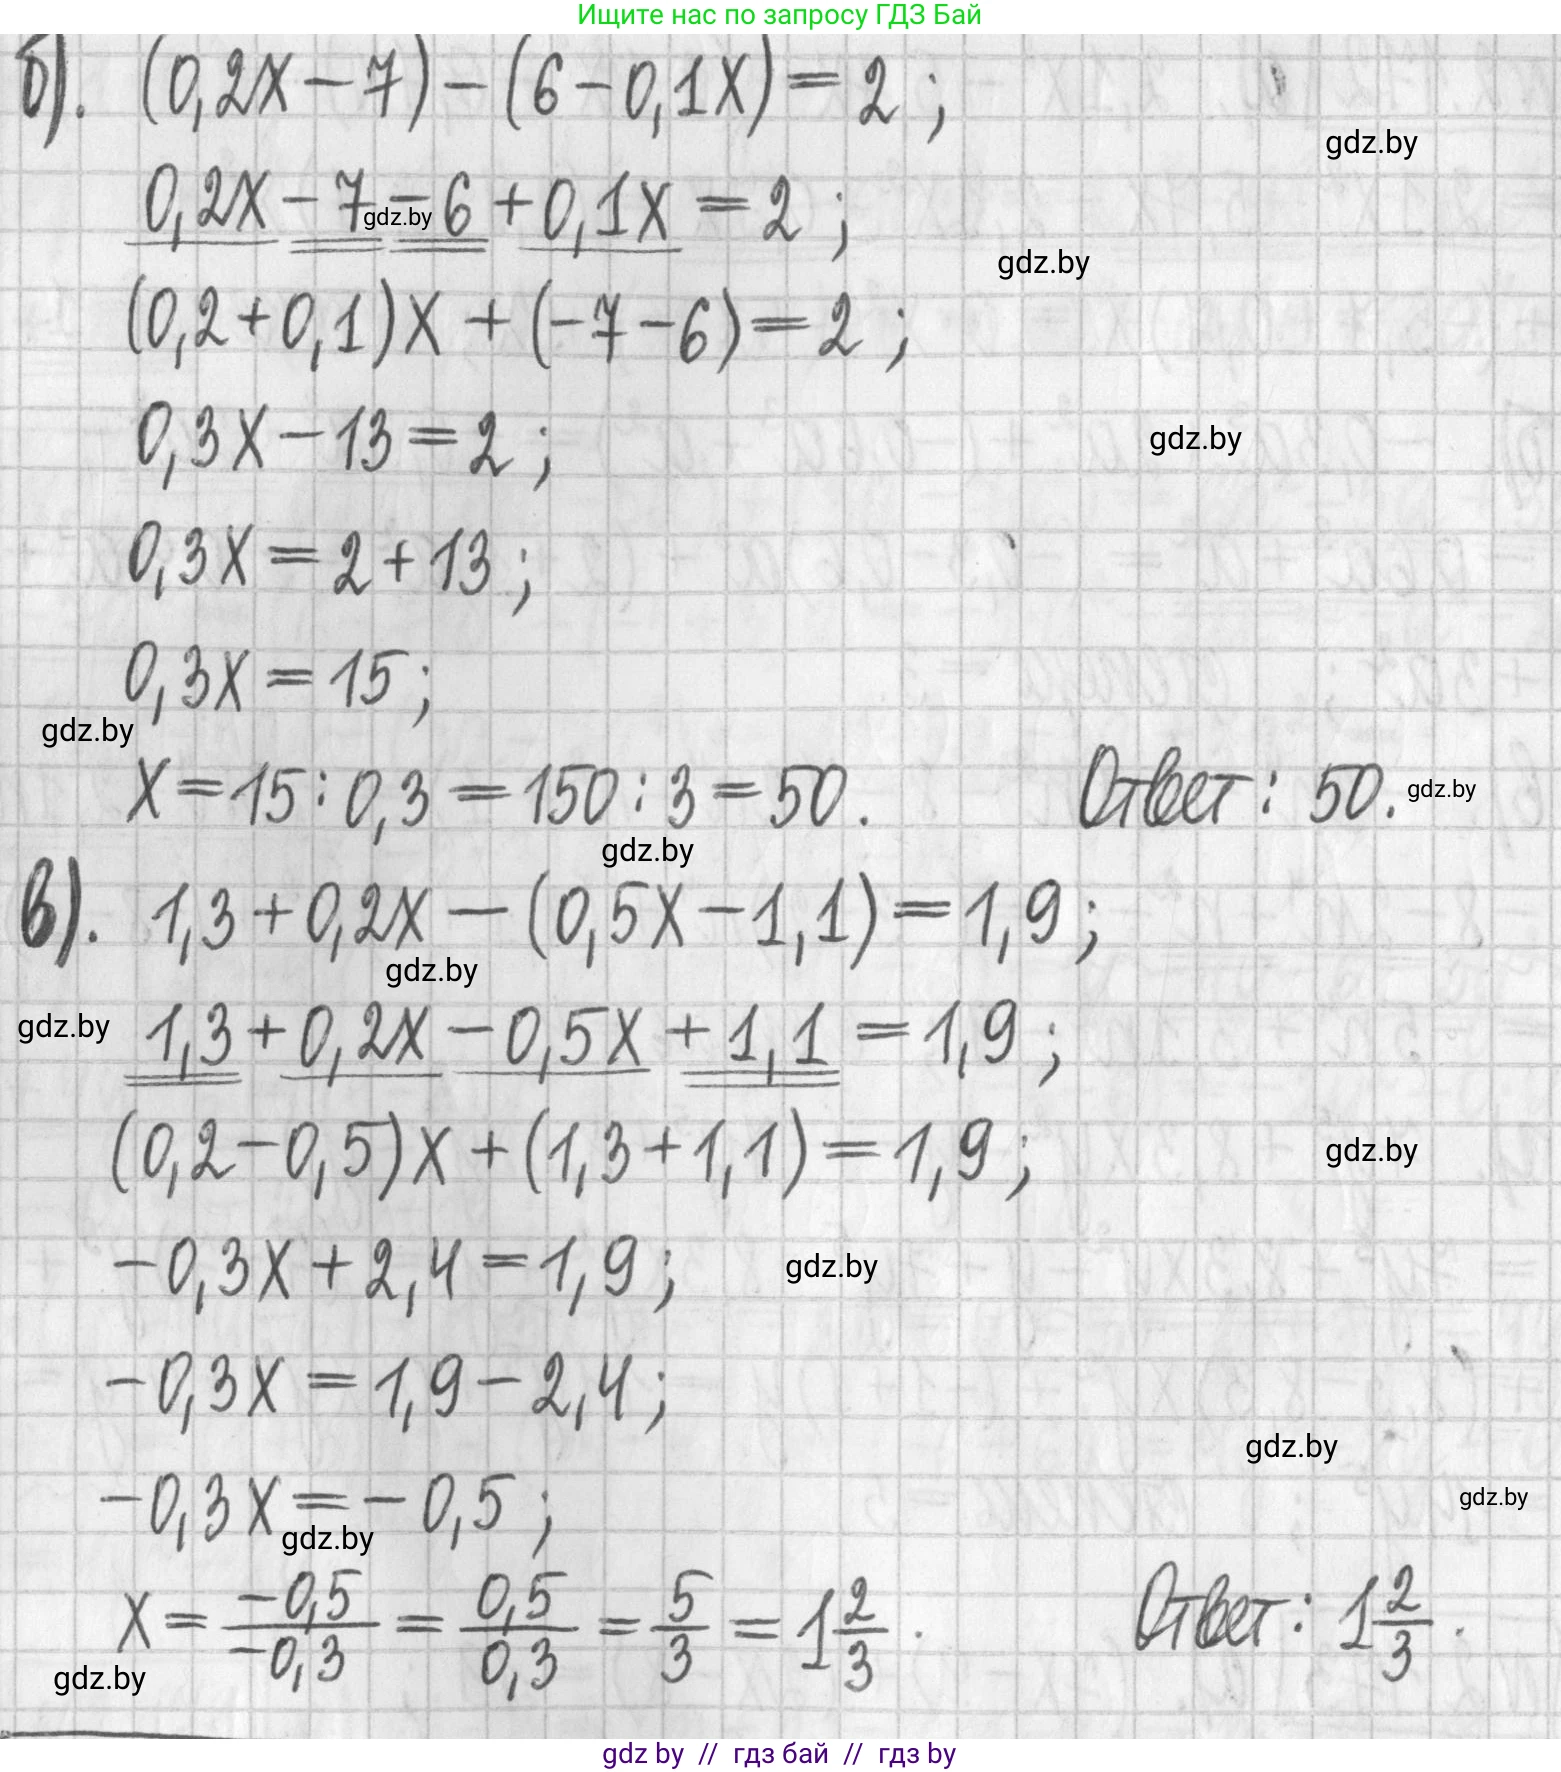 Ищите нас по запросу ГДЗ Бай
б). (0,2x - 7) - (6 - 0,1x) = 2 ;
gdz.by
0,2x - 7 - 6 + 0,1x = 2 ;
gdz.by
gdz.by
(0,2 + 0,1)x + (-7 - 6) = 2 ;
0,3x - 13 = 2 ;
gdz.by
0,3x = 2 + 13 ;
0,3x = 15 ;
gdz.by
x = 15 : 0,3 = 150 : 3 = 50. Ответ : 50.
gdz.by
gdz.by
в). 1,3 + 0,2x - (0,5x - 1,1) = 1,9 ;
gdz.by
gdz.by
1,3 + 0,2x - 0,5x + 1,1 = 1,9 ;
(0,2 - 0,5)x + (1,3 + 1,1) = 1,9 ;
gdz.by
-0,3x + 2,4 = 1,9 ;
gdz.by
-0,3x = 1,9 - 2,4 ;
gdz.by
-0,3x = -0,5 ;
gdz.by
gdz.by
x = -0,5/-0,3 = 0,5/0,3 = 5/3 = 1 2/3 . Ответ : 1 2/3 .
gdz.by
gdz by // гдз бай // гдз by